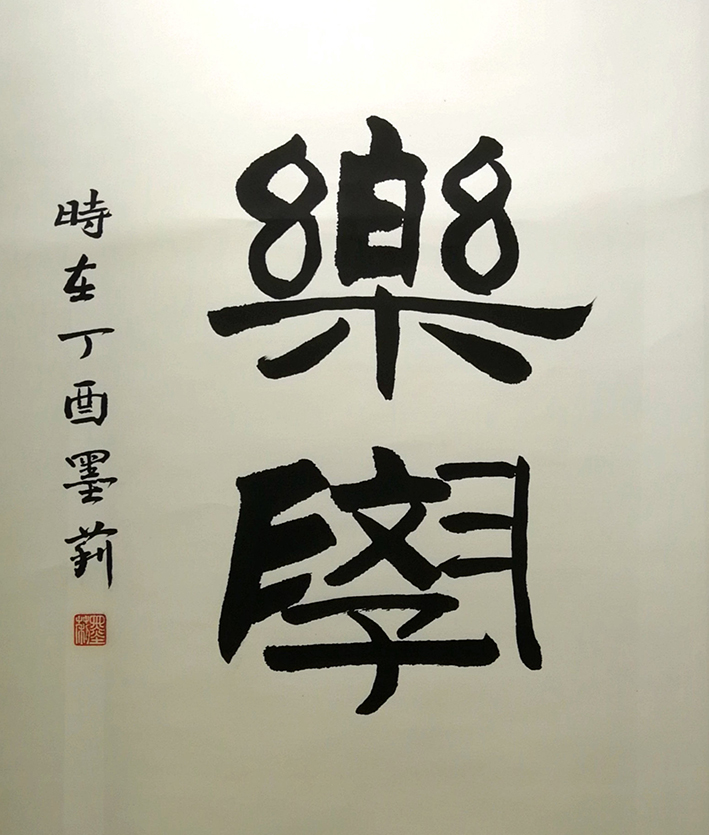 樂學
時在丁酉墨莉
墨莉